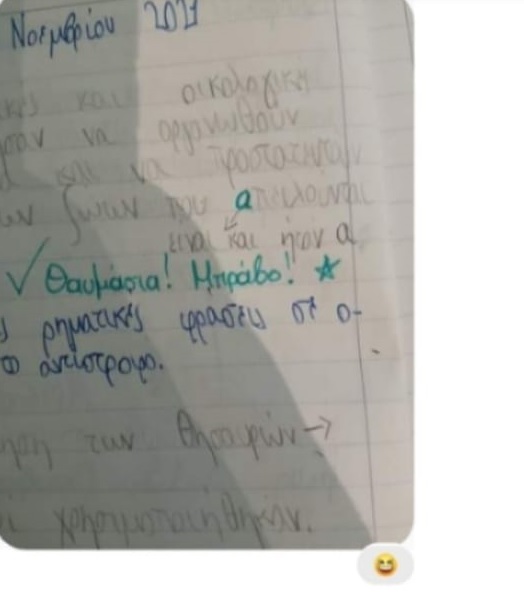 Νοεμβρίου 2021
κης και οικολογική
σαν να οργανωθούν
και να προστατεύουν
ων ζώων που απειλούνται
είναι και ήταν α
✓ Θαυμάσια! Μπράβο! ★
ς ρηματικές φράσεις σε ο-
το αντίστροφο.
ηση των θησαυρών →
ι χρησιμοποιήθηκαν.